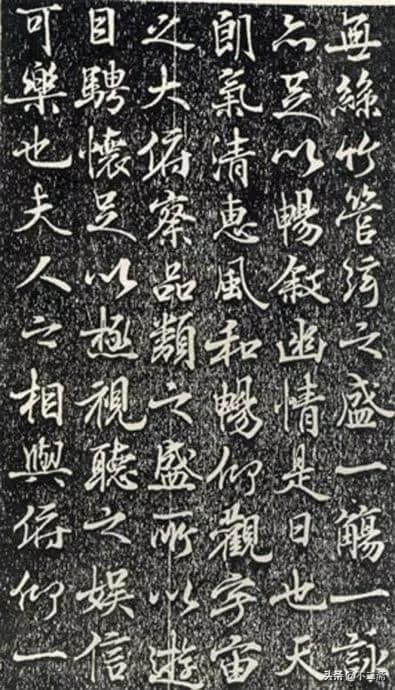 無絲竹管弦之盛一觴一詠
亦足以暢敘幽情是日也天
朗氣清惠風和暢仰觀宇宙
之大俯察品類之盛所以遊
目騁懷足以極視聽之娛信
可樂也夫人之相與俯仰一
头条@不二斋